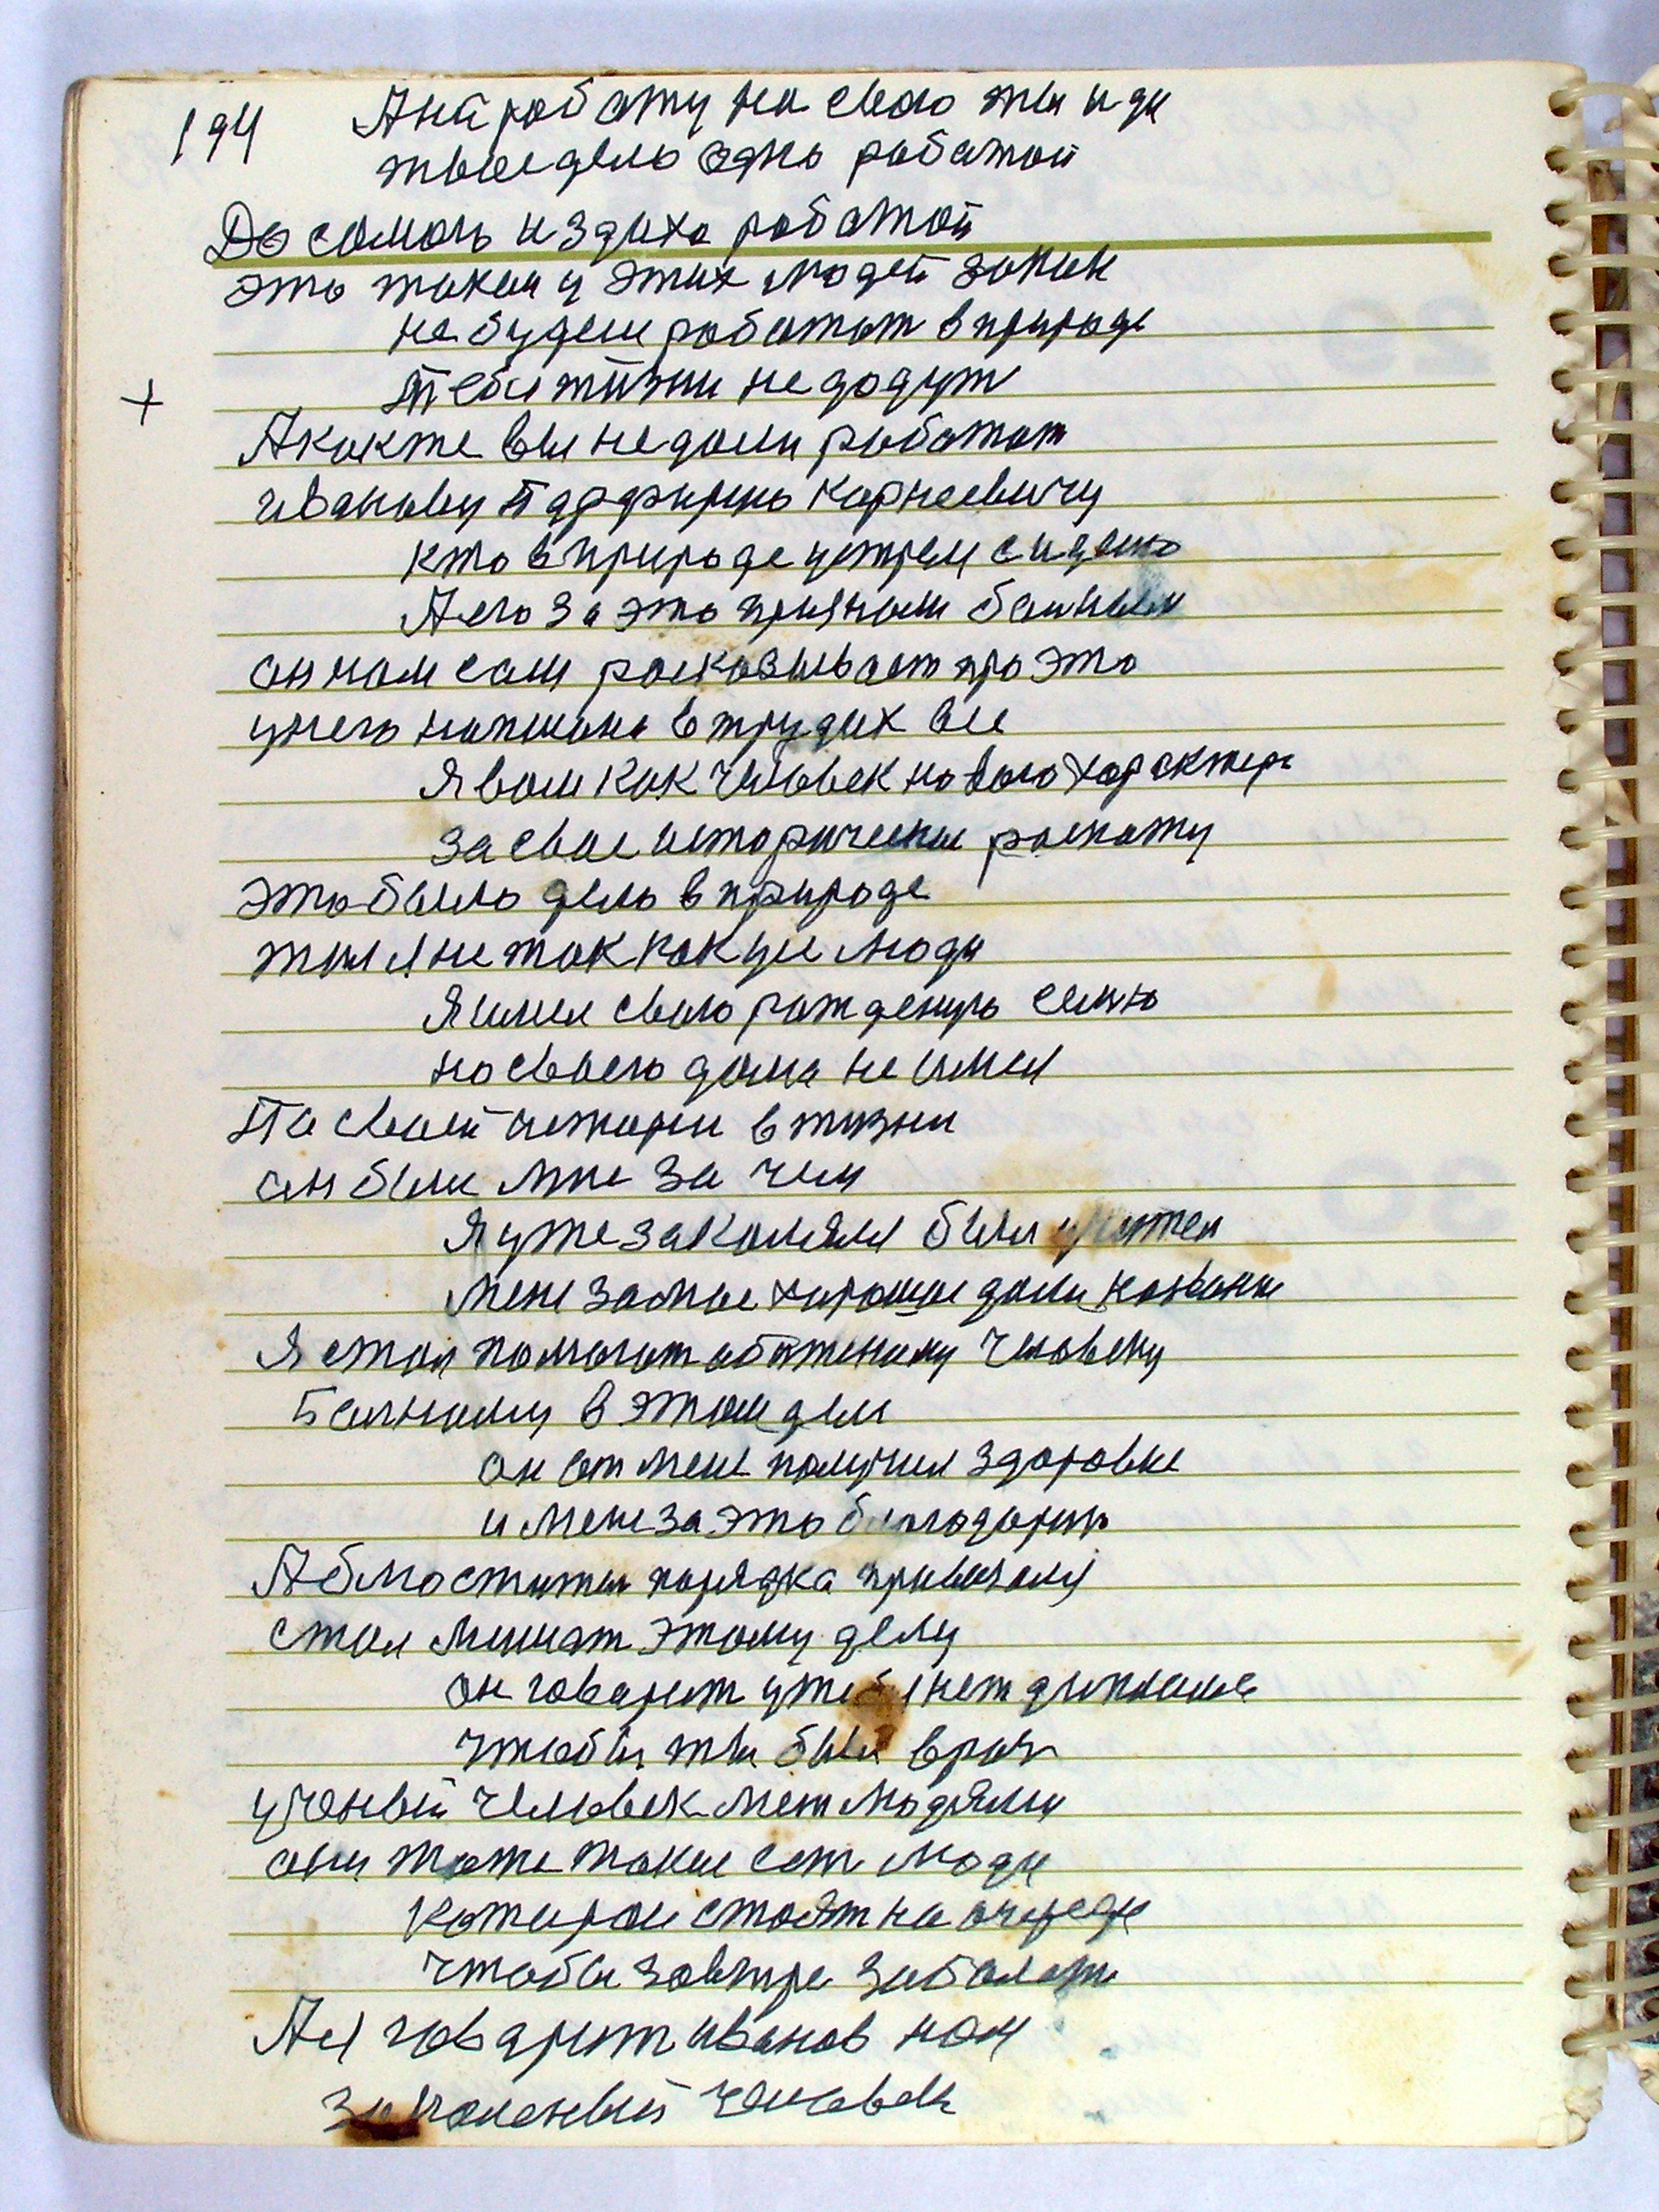 194
А на работу на свою ты иди
твое дело одно работай
До самого издыха работай
это такои у этих людей закон
не будеш работат в природе
тебе жизни не дадут
А как же вы не дали работат
иванову Парфирию Корнеевичу
кто в природе утрем
А его за это признали болным
он нам сам расказывает про это
у него написано в трудах все
Я вам как человек новаго характера
за свое историческое раскажу
это было дело в природе
жил я не так как усе люди
Я имел свою рожденую семю
но своего дома не имел
По своей истории в жизни
он был мне за чем
Я уже закалял был
мене за мое хорошое дали названия
Я стал помогат обиженому человеку
Болному в этом деле
он от мене получил здоровие
и мене за это благодарит
А блюститель порядка
стал мишат этому делу
он говарит у тебя нет диплома
чтобы ты был врач
ученый человек меж людями
они тоже такие ест люди
которои стоят на очереде
чтобы завтра заболет
А я говарит иванов нам
закаленый человек